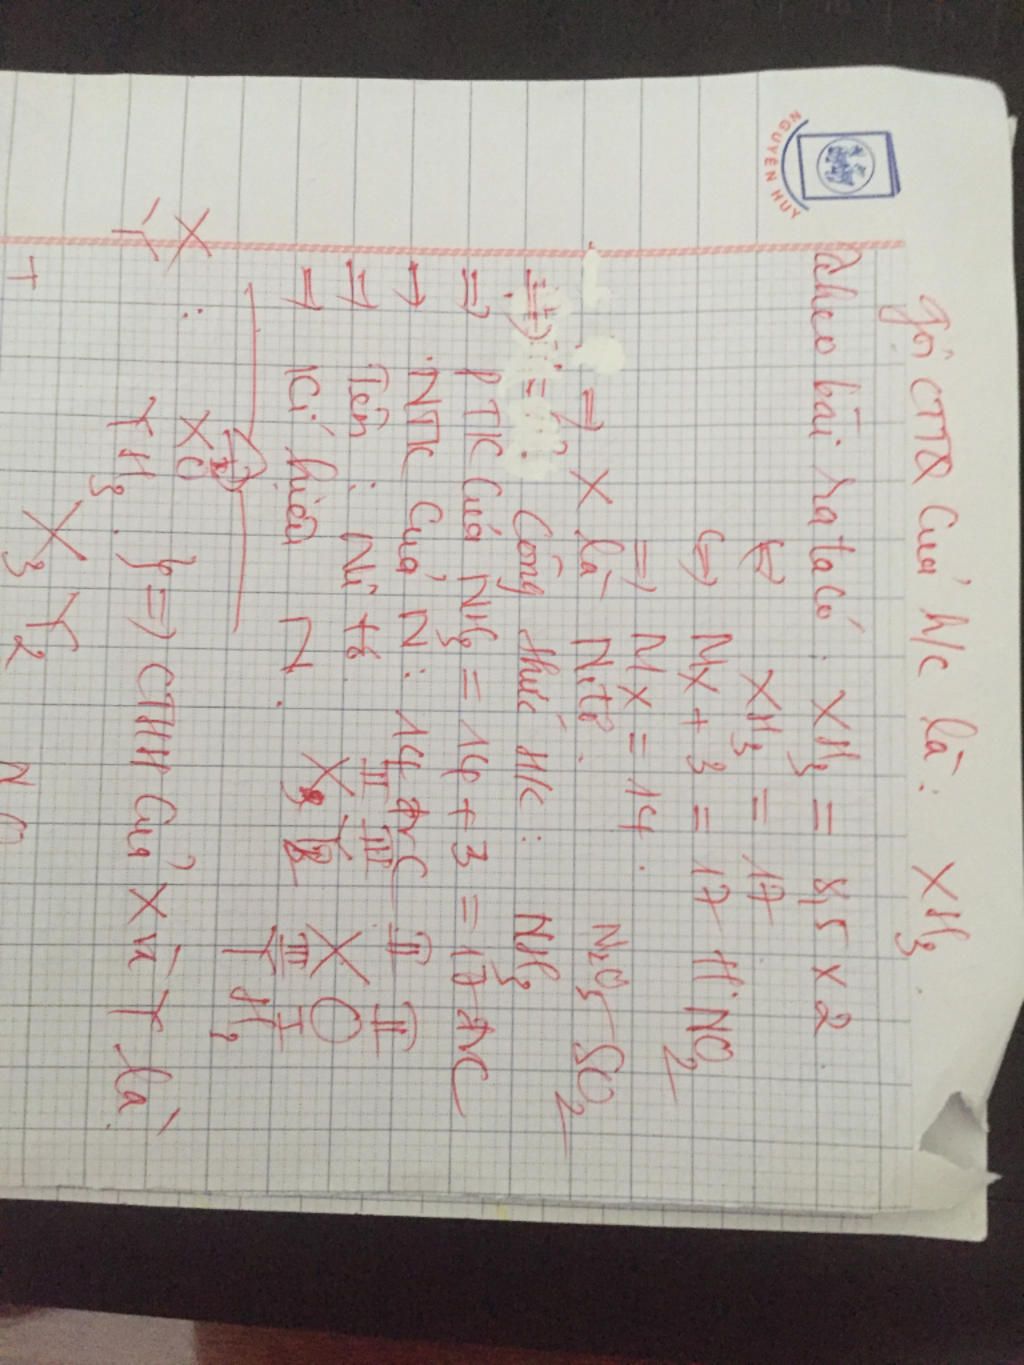 NGUYÊN ANH
Gọi CTTQ của h/c là: XH3.
Theo bài ra ta có: XH3 = 8,5 x 2.
XH3 = 17
Mx + 3 = 17 HNO2
=> Mx = 14.
=> X là Nitơ. N2O5 SO2
Công thức h/c: NH3
=> PTK của NH3 = 14 + 3 = 17 đvC
NTK của N: 14 đvC II II
=> Tên: Nitơ. II III X O
=> Kí hiệu N. X3 Y2 III I
Y H3
X: XO
Y: YH3. } => CTHH của X và Y là:
X3Y2